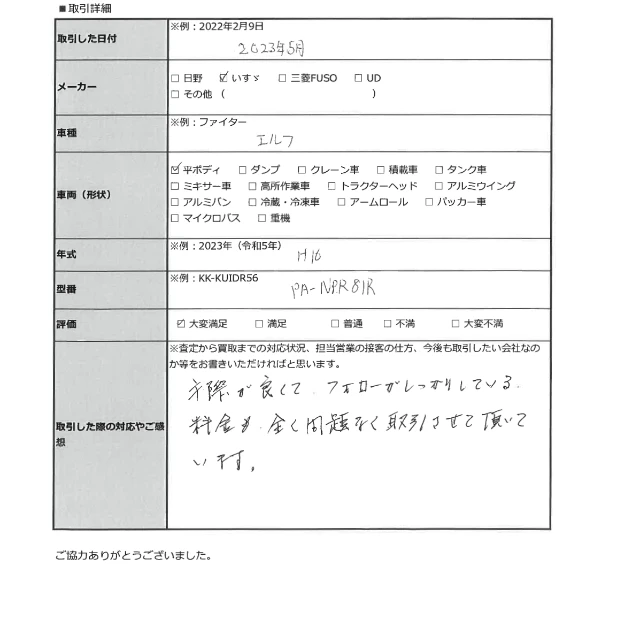 ■ 取引詳細
取引した日付
※例：2022年2月9日
2023年5月
メーカー
□ 日野 ☑ いすゞ □ 三菱FUSO □ UD
□ その他 （ ）
車種
※例：ファイター
エルフ
車両（形状）
☑ 平ボディ □ ダンプ □ クレーン車 □ 積載車 □ タンク車
□ ミキサー車 □ 高所作業車 □ トラクターヘッド □ アルミウイング
□ アルミバン □ 冷蔵・冷凍車 □ アームロール □ パッカー車
□ マイクロバス □ 重機
年式
※例：2023年（令和5年）
H16
型番
※例：KK-KUIDR56
PA-NPR81R
評価
☑ 大変満足 □ 満足 □ 普通 □ 不満 □ 大変不満
取引した際の対応やご感
想
※査定から買取までの対応状況、担当営業の接客の仕方、今後も取引したい会社なの
か等をお書きいただければと思います。
手際が良くて、フォローがしっかりしている。
料金も、全く問題なく取引させて頂いて
います。
ご協力ありがとうございました。